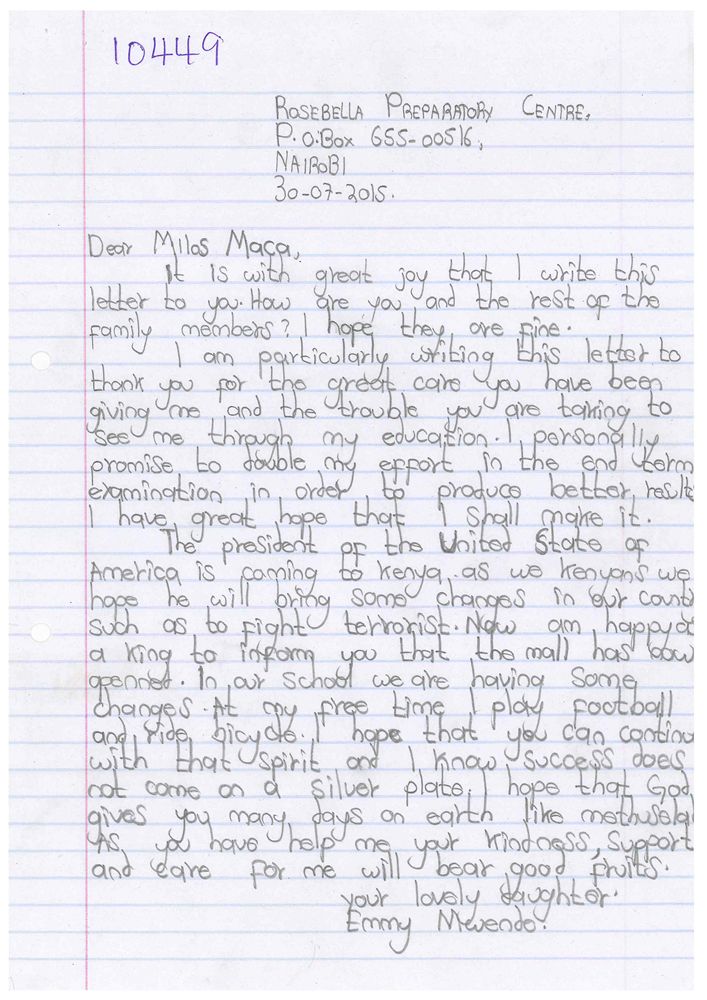 10449
ROSEBELLA PREPARATORY CENTRE,
P.O.Box 655-00516,
NAIROBI
30-07-2015.
Dear Milos Maca,
It is with great joy that I write this
letter to you. How are you and the rest of the
family members? I hope they are fine.
I am particularly writing this letter to
thank you for the great care you have been
giving me and the trouble you are taking to
see me through my education. I personally
promise to double my effort in the end term
examination in order to produce better, result
I have great hope that I shall make it.
The president of the United State of
America is coming to Kenya, as we kenyans we
hope he will bring some changes in our count
such as to fight terrorist. Now am happy
a king to inform you that the mall has
openned. In our school we are having some
changes. At my free time I play football
and ride bicycle. I hope that you can continu
with that spirit and I know success does
not come on a silver plate. I hope that God
gives you many days on earth like methusela
As you have help me your kindness, support
and care for me will bear good fruits.
your lovely daughter.
Emmy Mwende.